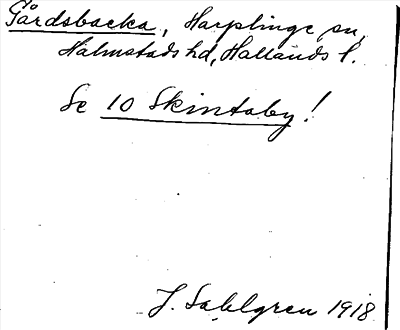 Gårdsbacka, Harplinge sn,
Halmstads hd, Hallands l.
Se 10 Skintaby!
J. Sahlgren 1918